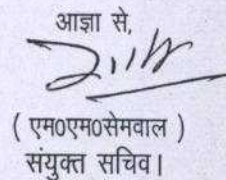 आज्ञा से,
( एम०एम०सेमवाल )
संयुक्त सचिव।